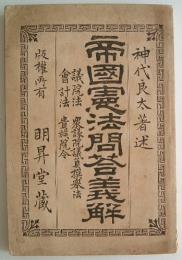 神代良太著述
帝國憲法問答義解
衆議院議員撰擧法
貴族院令
議院法
會計法
版權所有
明昇堂藏